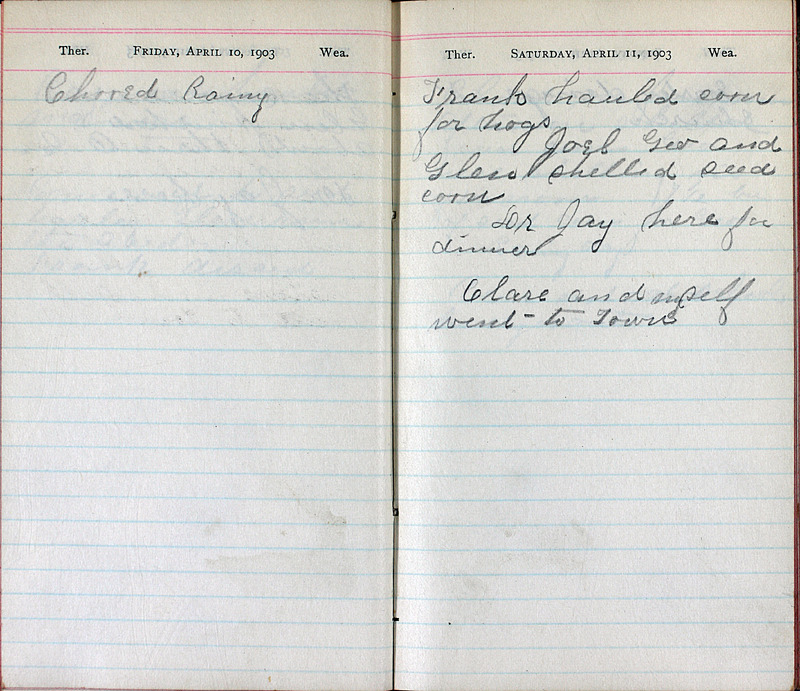 Ther. FRIDAY, APRIL 10, 1903 Wea.
Chored Rainy
Ther. SATURDAY, APRIL 11, 1903 Wea.
Frank hauled corn
for hogs
Joel Geo and
Glen shelled seed
corn
Dr Jay here for
dinner
Clare and myself
went to Town